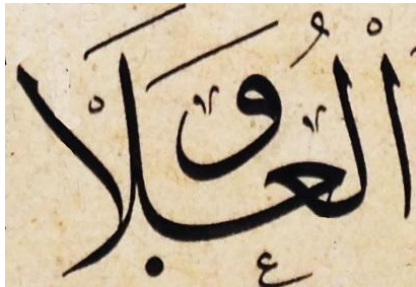 وَالْعُلَا